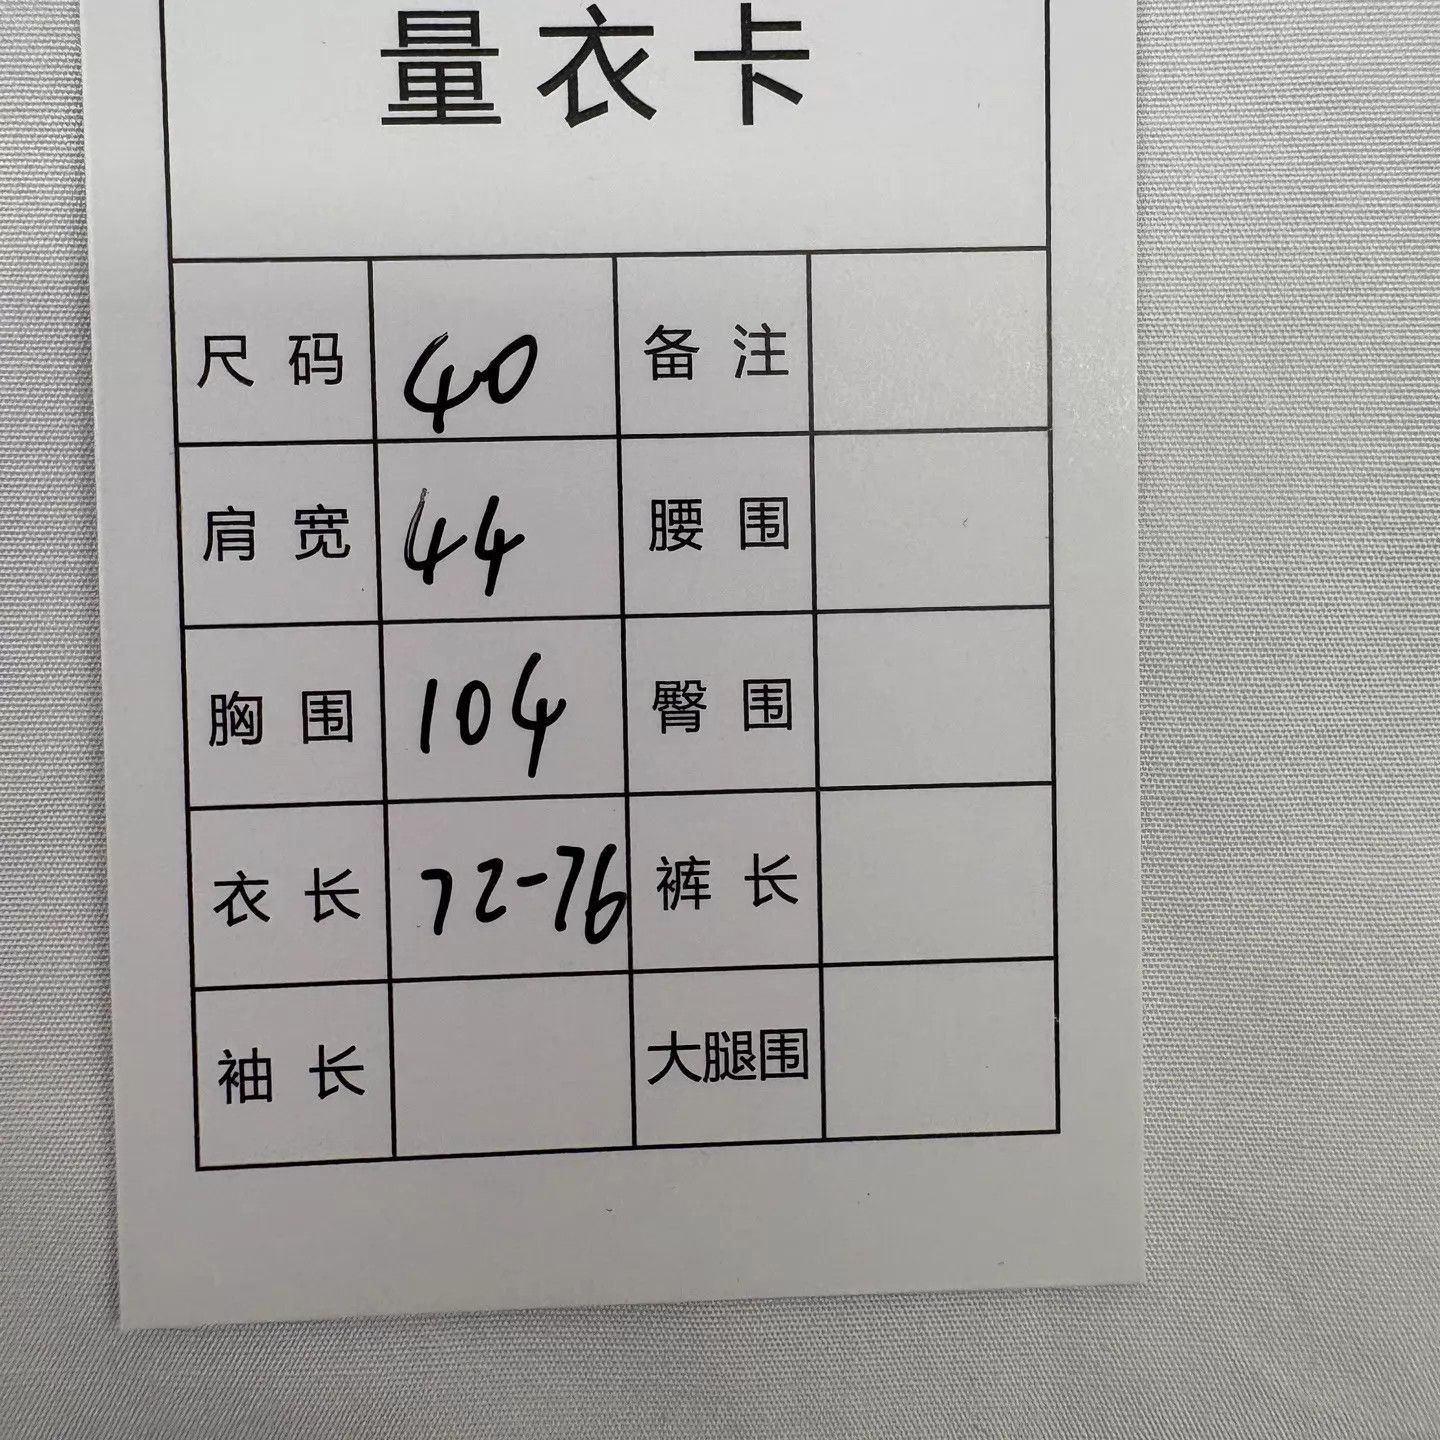 量衣卡
尺码 40 备注
肩宽 44 腰围
胸围 104 臀围
衣长 72-76 裤长
袖长 大腿围